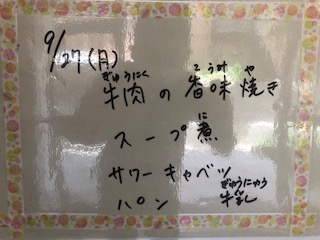 9/27(月)
ぎゅうにく こうみ や
牛肉の香味焼き
に
スープ煮
サワーキャベツ
ぎゅうにゅう
パン 牛乳